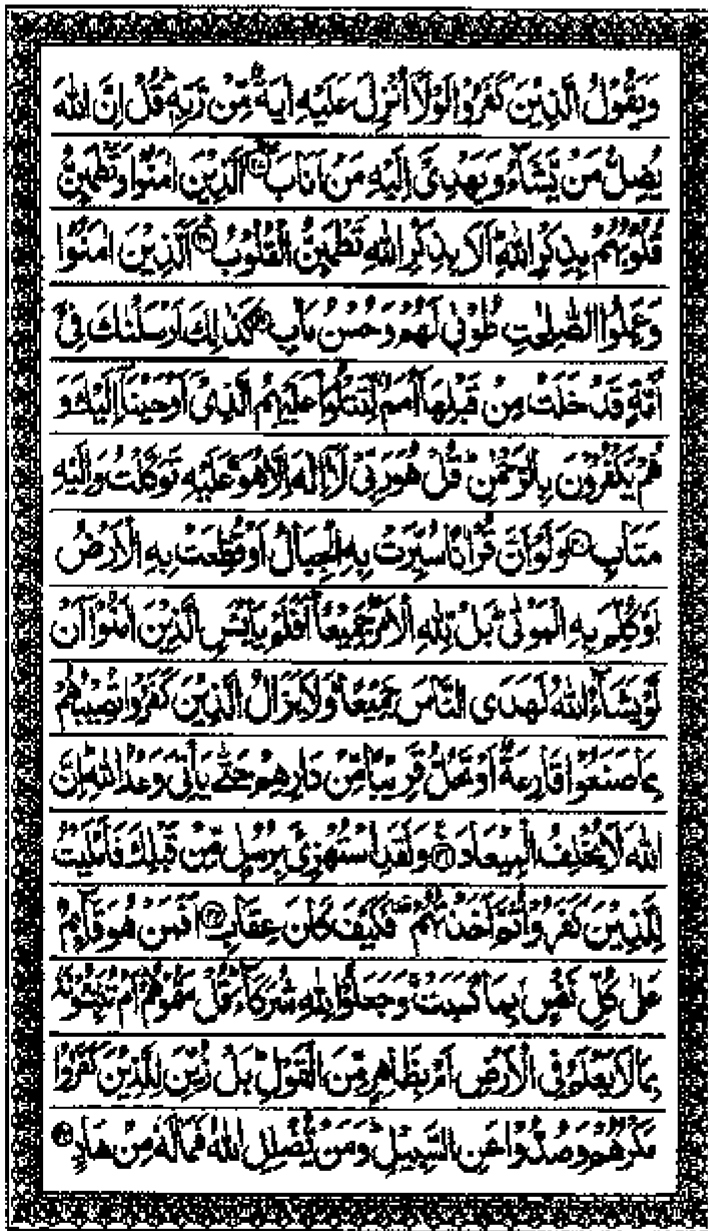 وَيَقُوۡلُ الَّذِيۡنَ كَفَرُوۡا لَوۡلَاۤ اُنۡزِلَ عَلَيۡهِ اٰيَةٌ مِّنۡ رَّبِّهٖ ؕ قُلۡ اِنَّ اللّٰهَ
يُضِلُّ مَنۡ يَّشَآءُ وَيَهۡدِىۡۤ اِلَيۡهِ مَنۡ اَنَابَ ۖ‏ۚ ﴿۲۷﴾ اَلَّذِيۡنَ اٰمَنُوۡا وَتَطۡمَٮِٕنُّ
قُلُوۡبُهُمۡ بِذِكۡرِ اللّٰهِ ؕ اَلَا بِذِكۡرِ اللّٰهِ تَطۡمَٮِٕنُّ الۡقُلُوۡبُ ؕ‏ ﴿۲۸﴾ اَلَّذِيۡنَ اٰمَنُوۡا
وَعَمِلُوا الصّٰلِحٰتِ طُوۡبٰى لَهُمۡ وَحُسۡنُ مَاٰبٍ‏ ﴿۲۹﴾ كَذٰلِكَ اَرۡسَلۡنٰكَ فِىۡۤ
اُمَّةٍ قَدۡ خَلَتۡ مِنۡ قَبۡلِهَاۤ اُمَمٌ لِّتَتۡلُوَا۟ عَلَيۡهِمُ الَّذِىۡۤ اَوۡحَيۡنَاۤ اِلَيۡكَ وَ
هُمۡ يَكۡفُرُوۡنَ بِالرَّحۡمٰنِ ؕ قُلۡ هُوَ رَبِّىۡ لَاۤ اِلٰهَ اِلَّا هُوَ ۚ عَلَيۡهِ تَوَكَّلۡتُ وَاِلَيۡهِ
مَتَابِ‏ ﴿۳۰﴾ وَلَوۡ اَنَّ قُرۡاٰنًا سُيِّرَتۡ بِهِ الۡجِبَالُ اَوۡ قُطِّعَتۡ بِهِ الۡاَرۡضُ
اَوۡ كُلِّمَ بِهِ الۡمَوۡتٰى ؕ بَلْ لِّلّٰهِ الۡاَمۡرُ جَمِيۡعًا ؕ اَفَلَمۡ يَايۡـَٔسِ الَّذِيۡنَ اٰمَنُوۡۤا اَنۡ
لَّوۡ يَشَآءُ اللّٰهُ لَهَدَى النَّاسَ جَمِيۡعًا ؕ وَلَا يَزَالُ الَّذِيۡنَ كَفَرُوۡا تُصِيۡبُهُمۡ
بِمَا صَنَعُوۡا قَارِعَةٌ اَوۡ تَحُلُّ قَرِيۡبًا مِّنۡ دَارِهِمۡ حَتّٰى يَاۡتِىَ وَعۡدُ اللّٰهِ ؕ اِنَّ
اللّٰهَ لَا يُخۡلِفُ الۡمِيۡعَادَ‏ ﴿۳۱﴾ وَلَـقَدِ اسۡتُهۡزِئَ بِرُسُلٍ مِّنۡ قَبۡلِكَ فَاَمۡلَيۡتُ
لِلَّذِيۡنَ كَفَرُوۡا ثُمَّ اَخَذۡتُهُمۡ فَكَيۡفَ كَانَ عِقَابِ‏ ﴿۳۲﴾ اَفَمَنۡ هُوَ قَآٮِٕمٌ
عَلٰى كُلِّ نَفۡسٍۢ بِمَا كَسَبَتۡ ۚ وَجَعَلُوۡا لِلّٰهِ شُرَكَآءَ ؕ قُلۡ سَمُّوۡهُمۡ ؕ اَمۡ تُنَـبِّـُٔـوۡنَهٗ
بِمَا لَا يَعۡلَمُ فِى الۡاَرۡضِ اَمۡ بِظَاهِرٍ مِّنَ الۡقَوۡلِ ؕ بَلۡ زُيِّنَ لِلَّذِيۡنَ كَفَرُوۡا
مَكۡرُهُمۡ وَصُدُّوۡا عَنِ السَّبِيۡلِ ؕ وَمَنۡ يُّضۡلِلِ اللّٰهُ فَمَا لَهٗ مِنۡ هَادٍ‏ ﴿۳۳﴾